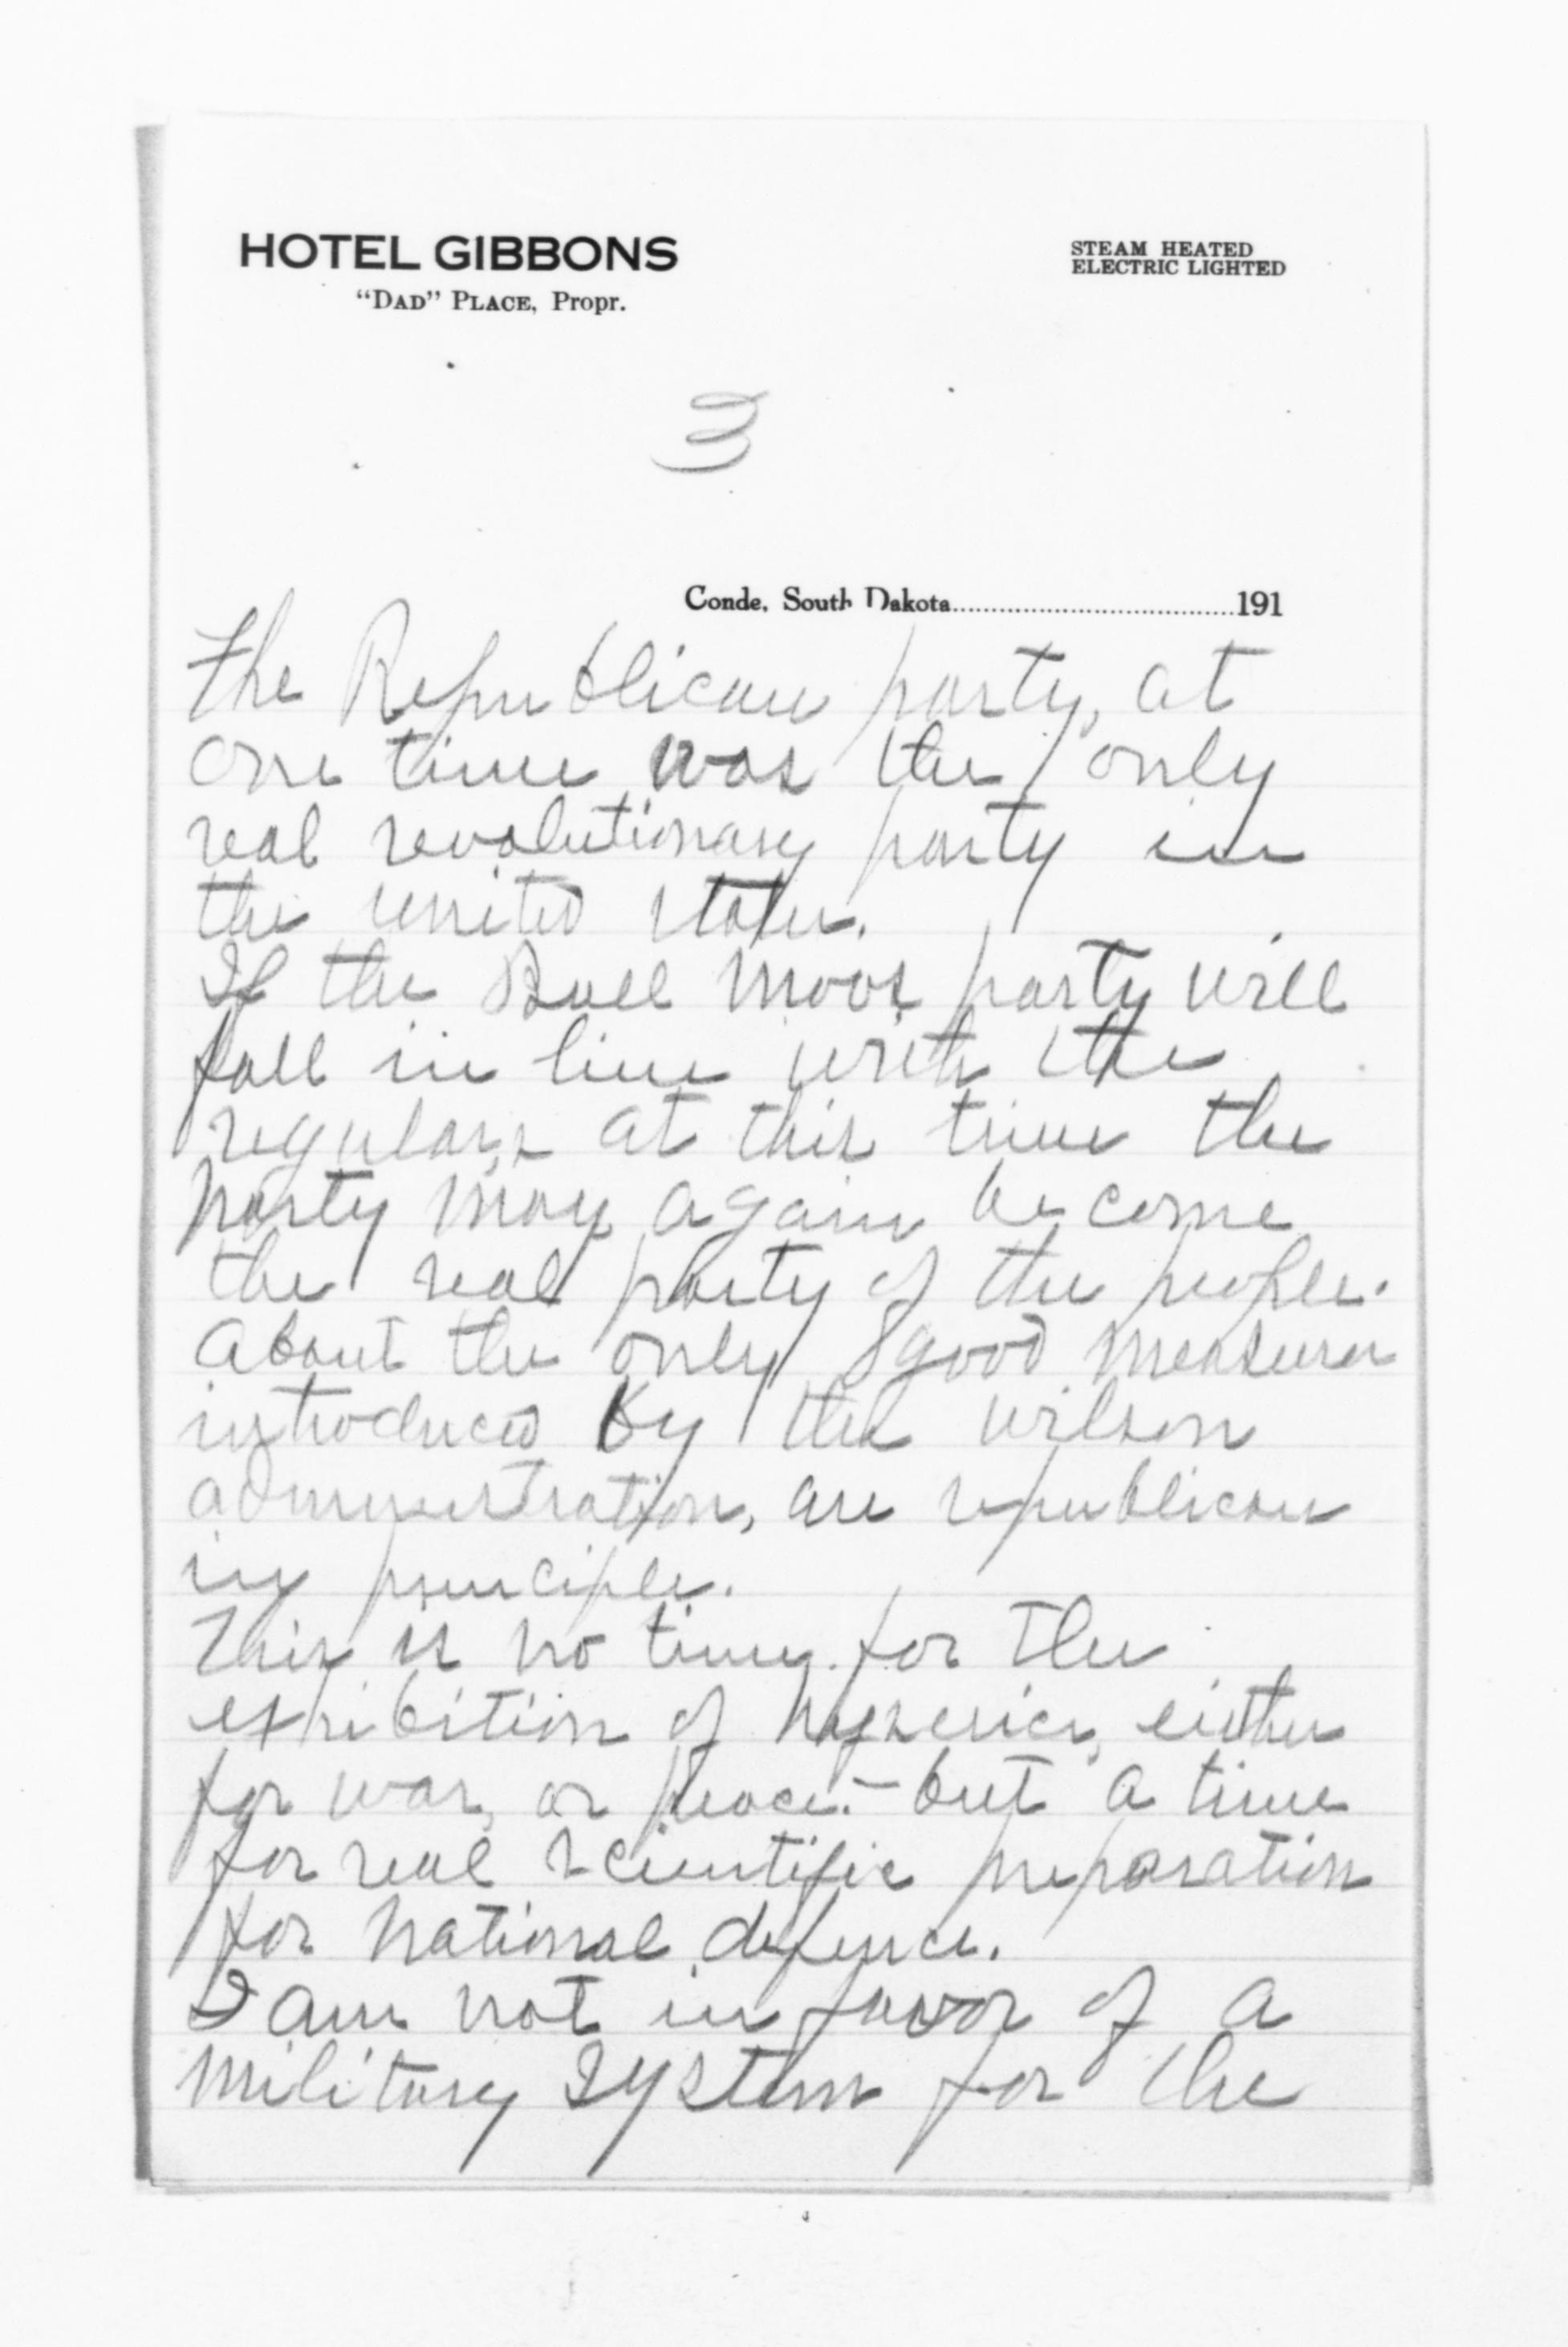 HOTEL GIBBONS
"DAD" PLACE, Propr.
STEAM HEATED
ELECTRIC LIGHTED
3
Conde, South Dakota 191
The Republican party, at
one time was the only
real revolutionary party in
the united states.
If the Bull Moos party will
fall in line with the
regulars at this time the
party may again become
the real party of the people.
About the only good measures
introduced by the Wilson
administration, are republican
in principle.
This is no time for the
exhibition of hysterics, either
for war, or peace. – but a time
for real scientific preparation
for national defence.
I am not in favor of a
military system for the